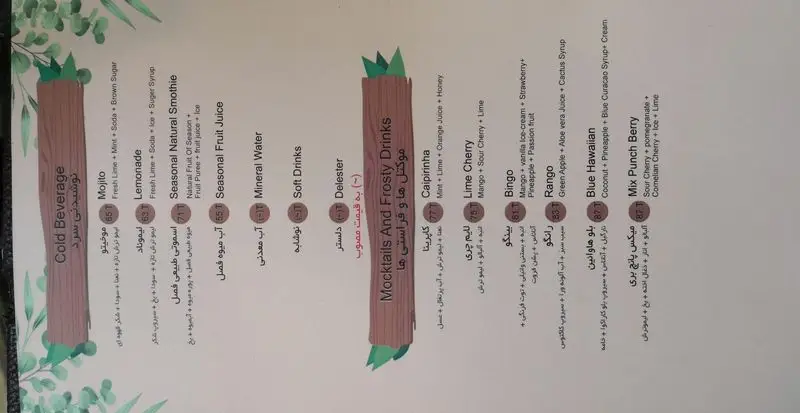 Cold Beverage
نوشیدنی سرد
Mojito
Fresh Lime + Mint + Soda + Brown Sugar
65 T
موخیتو
لیمو ترش تازه + نعنا + سودا + شکر قهوه ای
Lemonade
Fresh Lime + Soda + Ice + Suger Syrup
63 T
لیموناد
لیمو ترش تازه + سودا + یخ + سیروپ شکر
Seasonal Natural Smothie
Natural Fruit Of Season +
Fruit Puree + fruit juice + Ice
71 T
اسموتی طبیعی فصل
میوه طبیعی فصل + پوره میوه + آبمیوه + یخ
Seasonal Fruit Juice
55 T
آب میوه فصل
Mineral Water
(~)T
آب معدنی
Soft Drinks
(~)T
نوشابه
Delester
(~)T
دلستر
(~) به قیمت مصوب
Mocktails And Frosty Drinks
موکتل ها و فراستی ها
Caipirinha
Mint + Lime + Orange Juice + Honey
77 T
کایپرینا
نعنا + لیمو ترش + آب پرتقال + عسل
Lime Cherry
Mango + Sour Cherry + Lime
75 T
لایم چری
انبه + آلبالو + لیمو ترش
Bingo
Mango + vanilla Ice-cream + Strawberry+
Pineapple + Passion fruit
81 T
بینگو
انبه + بستنی وانیلی + توت فرنگی +
آناناس + پشن فروت
Rango
Green Apple + Aloe vera Juice + Cactus Syrup
83 T
رانگو
سیب سبز + آب آلوئه ورا + سیروپ کاکتوس
Blue Hawaiian
Coconut + Pineapple + Blue Curacao Syrup+ Cream
87 T
بلو هاوائین
نارگیل + آناناس + سیروپ بلو کاراکوا + خامه
Mix Punch Berry
Sour Cherry + pomegranate +
Cornelian Cherry + Ice + Lime
87 T
میکس پانچ بری
آلبالو + انار + ذغال اخته + یخ + لیموترش